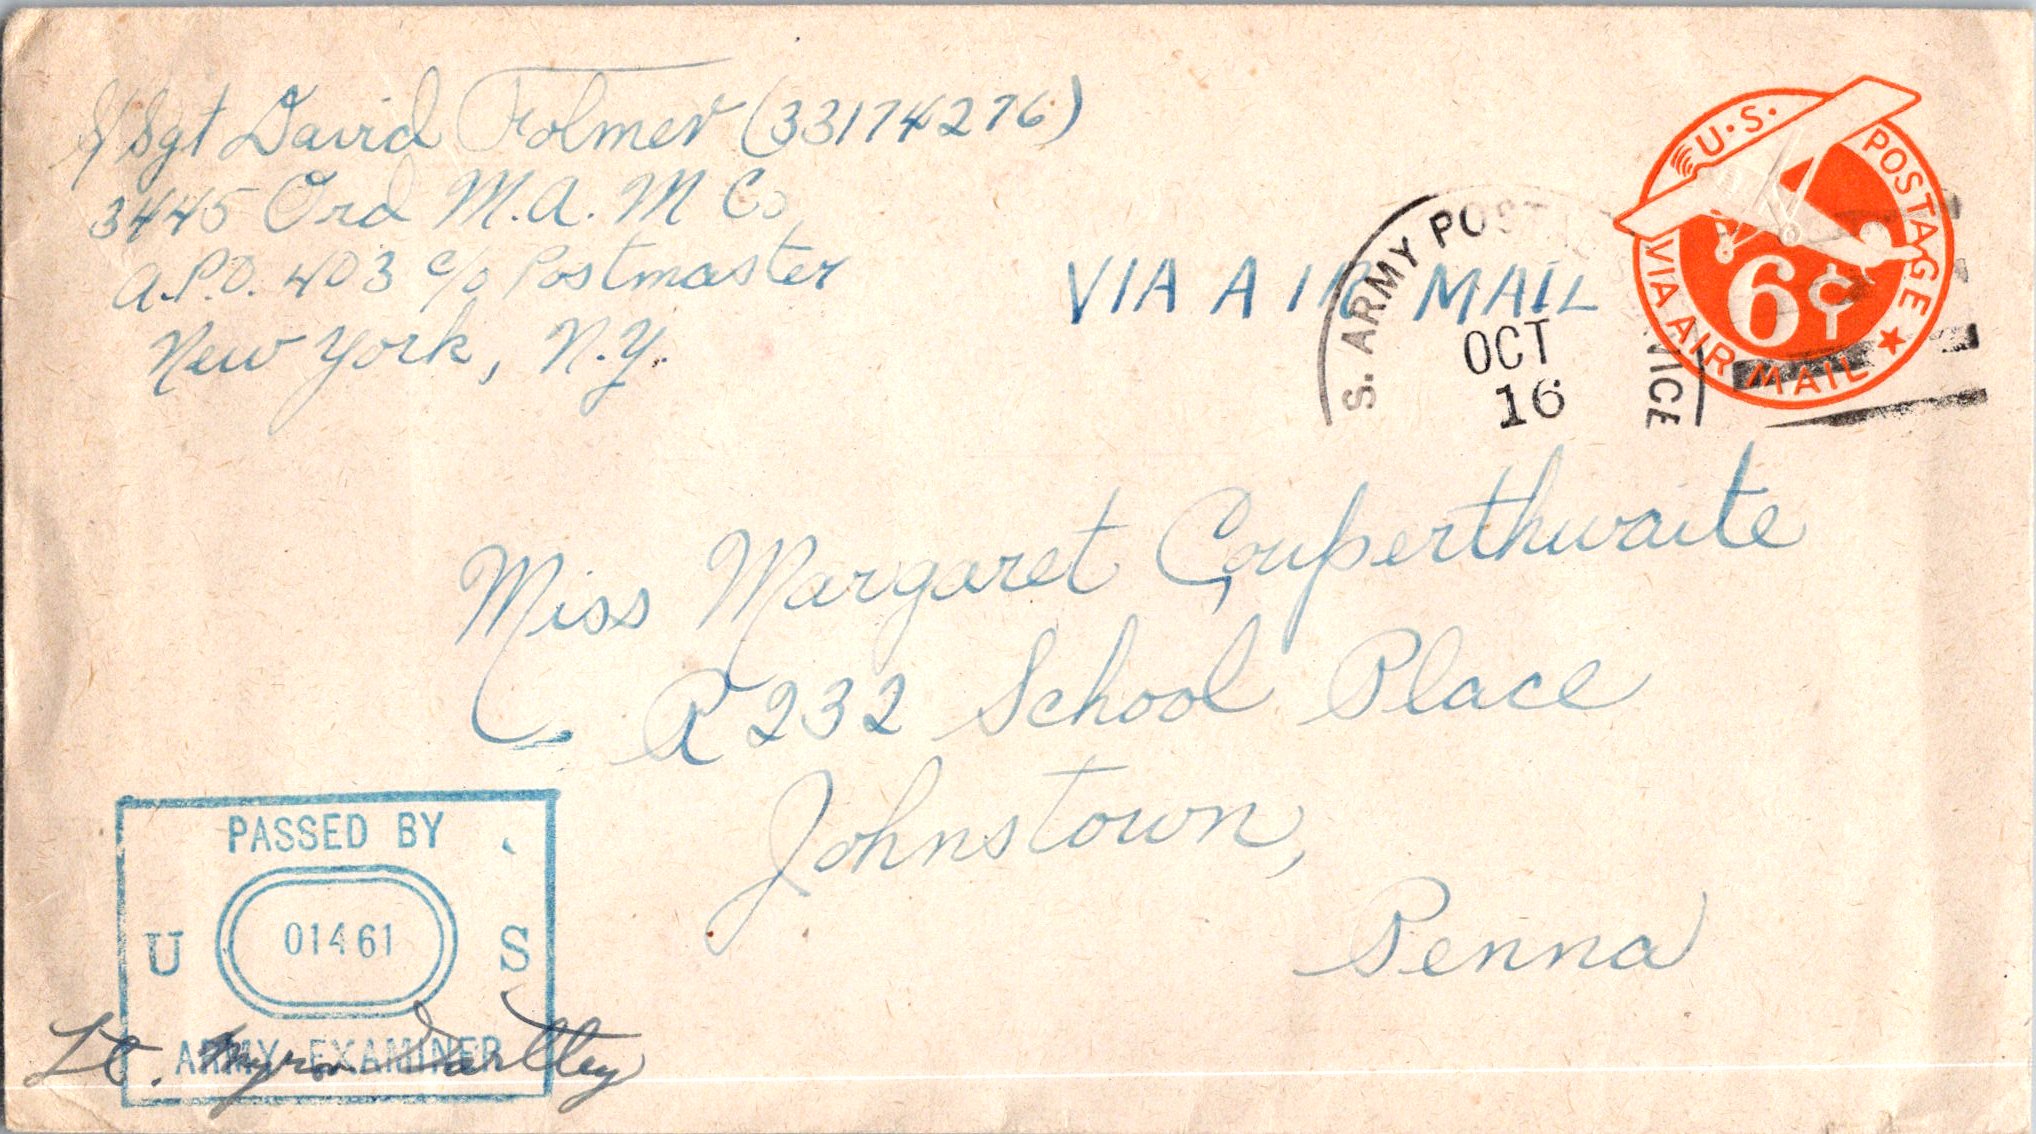 S/Sgt David Folmer (33174276)
3445 Ord M.A.M Co
A.P.O. 403 c/o Postmaster
New York, N.Y.
VIA AIR MAIL
S. ARMY POSTAL SERVICE
OCT
16
U.S. POSTAGE
6¢
VIA AIR MAIL
Miss Margaret Couperthwaite
R 232 School Place
Johnstown,
Penna
PASSED BY
U 01461 S
ARMY EXAMINER
Lt. Myron